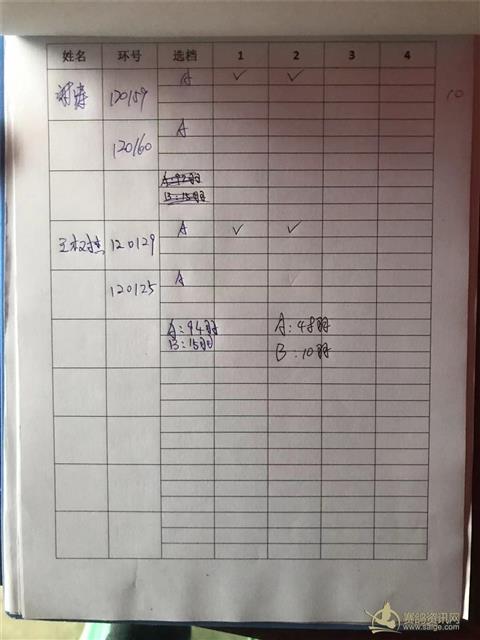 姓名 环号 选档 1 2 3 4
120159 A ✓ ✓
10
120160 A
A:92羽
B:15羽
120129 A ✓ ✓
120125 A
A:94羽 A:48羽
B:15羽 B:10羽
赛鸽资讯网
www.saige.com